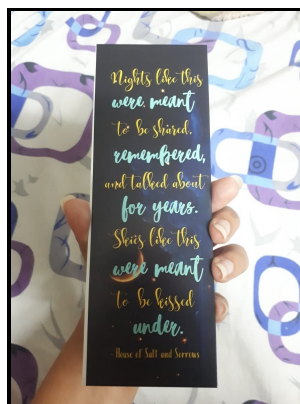 Nights like this
were meant
to be shared,
remembered,
and talked about
for years.
Skies like this
were meant
to be kissed
under.
- House of Salt and Sorrows